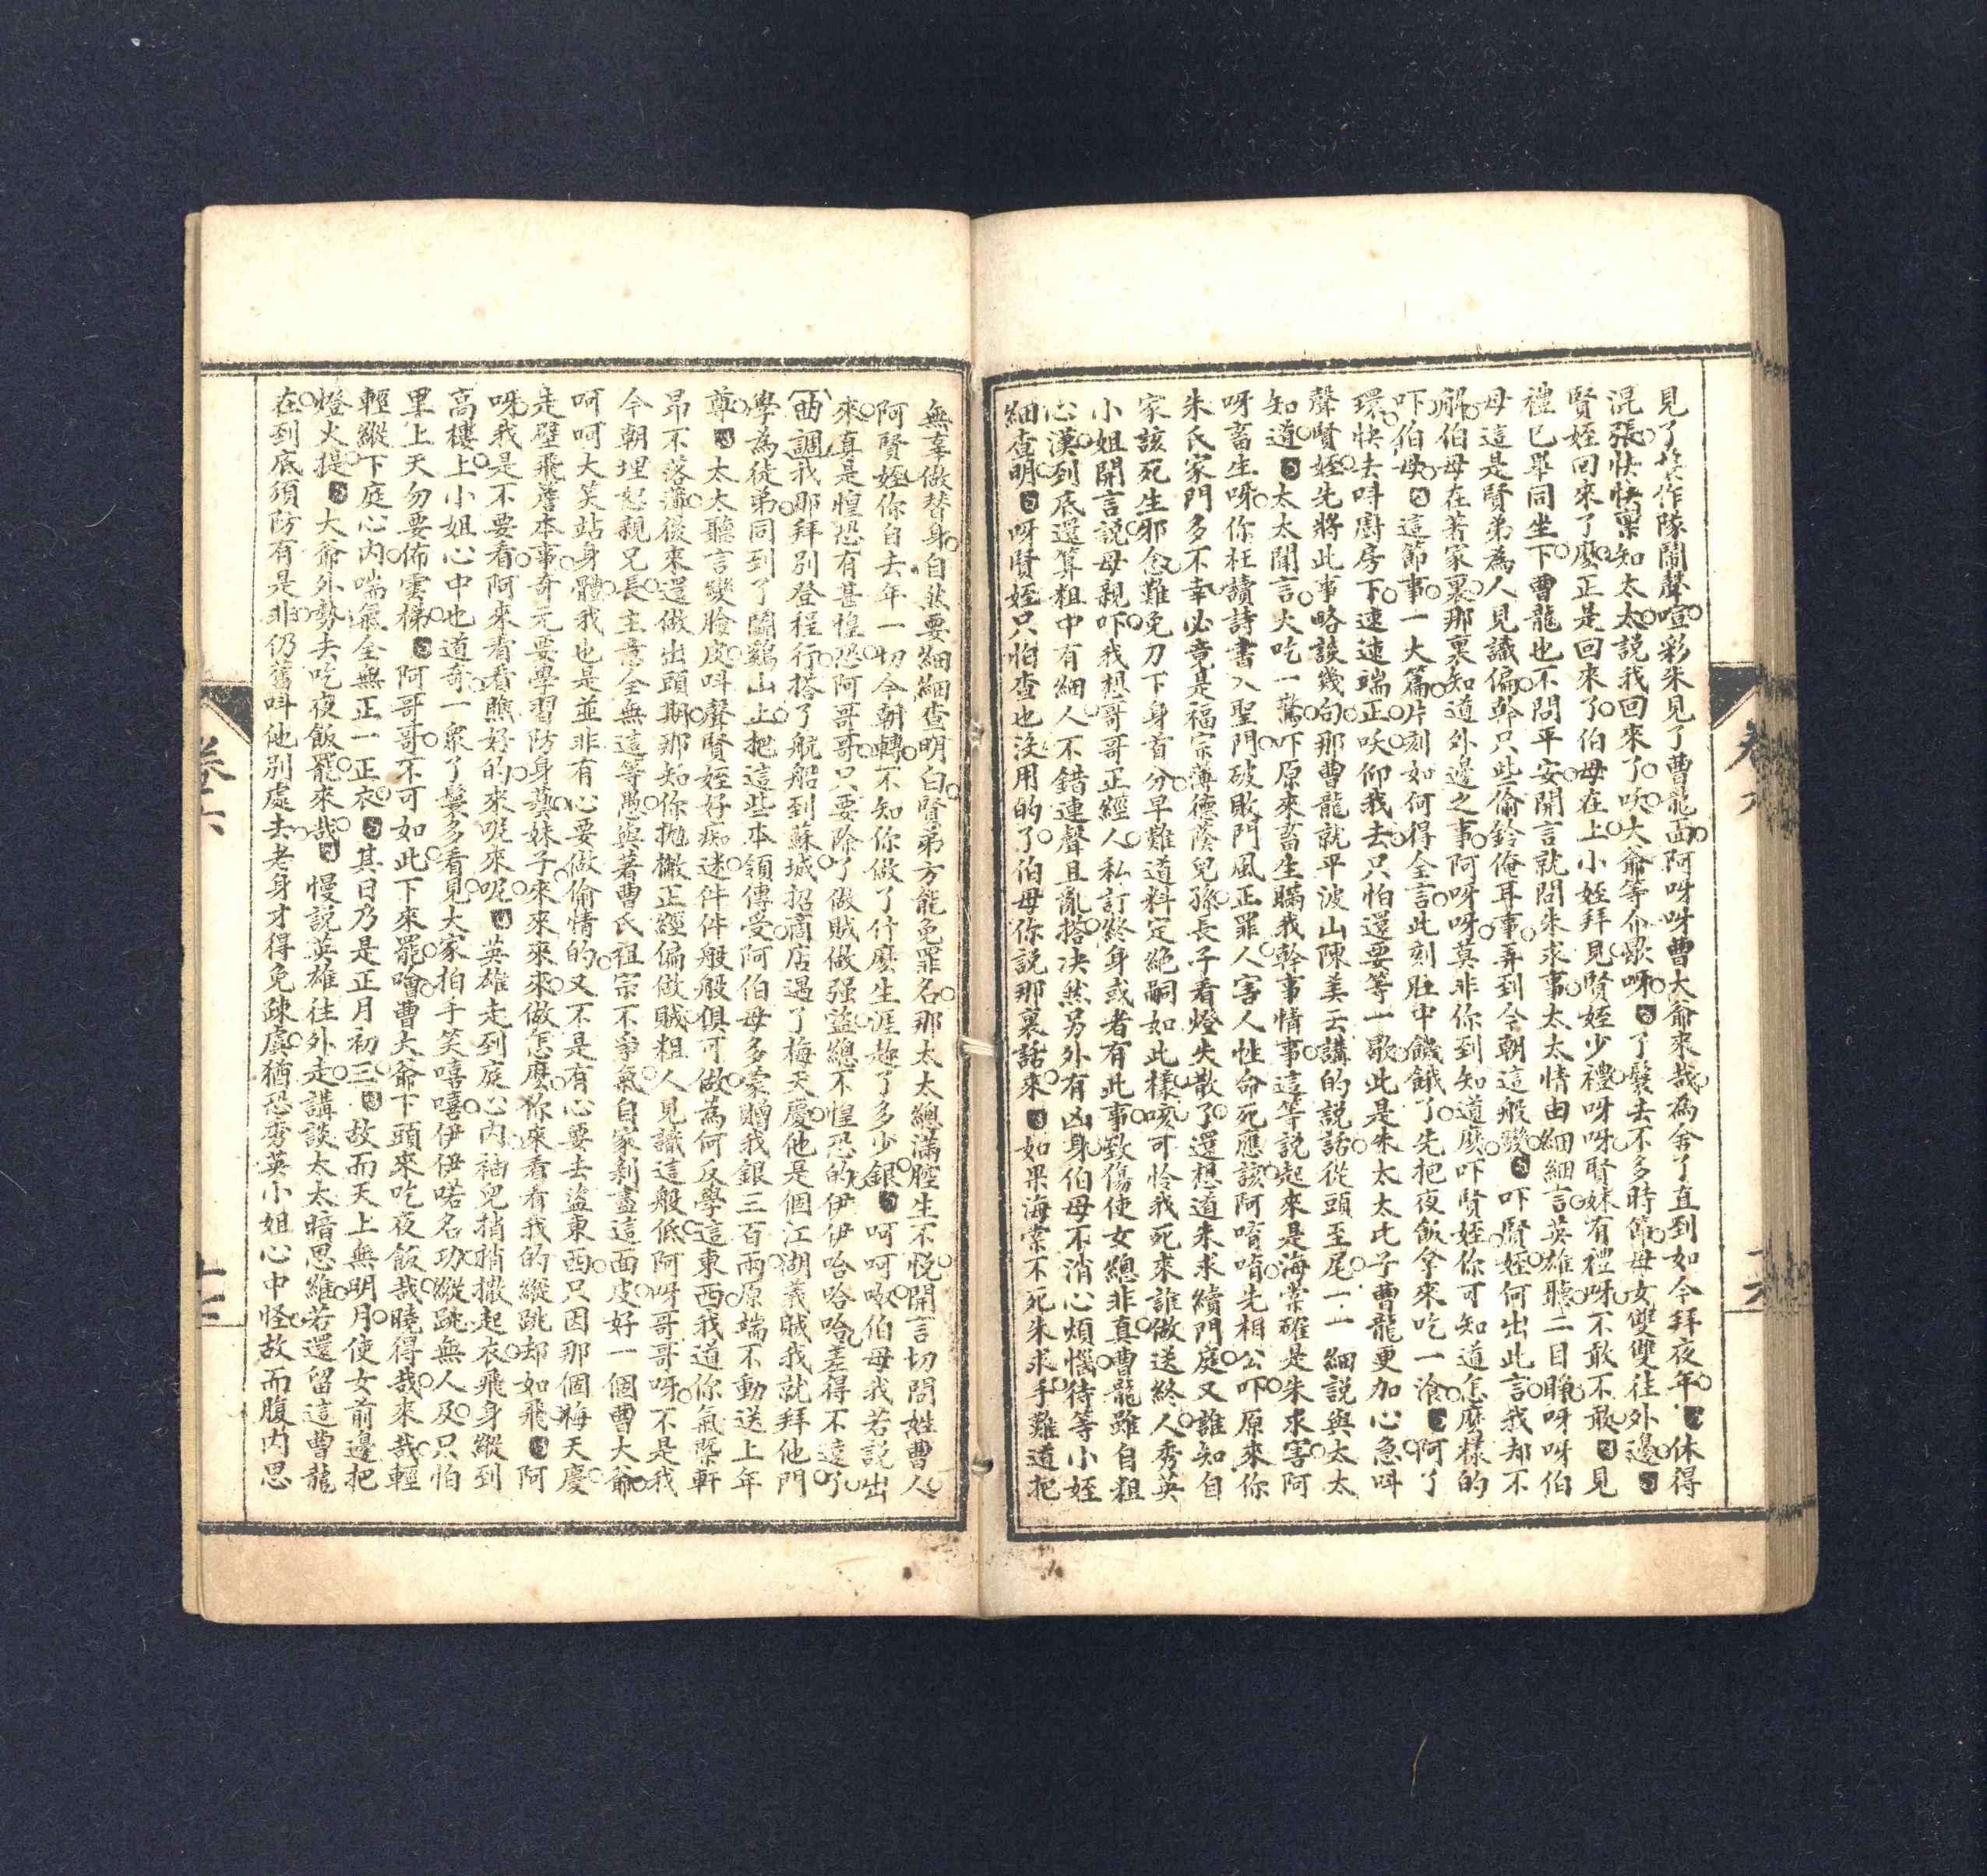 見了䒭作隊鬧聲喧彩朱見了曹龍面阿呀呀曹大爺來哉爲舍了直到如今拜夜年白休得
混張快快稟知太太說我回來了吹大爺等介歇呀白了鬟去不多時節母女雙雙往外邊白
賢姪回來了麽正是回來了伯母在上小姪拜見賢姪少禮呀呀賢妹有禮呀不敢不敢白見
禮已畢同坐下曹龍也不問平安開言就問朱求事太太情由細細言英雄聽二目睜呀呀伯
母這是賢弟爲人見識偏幹只些偷鈴俺耳事弄到今朝這般變白吓賢姪何出此言我却不
觧伯母在著家裏那裏知道外邊之事阿呀呀莫非你到知道麽吓賢姪你可知道怎麽樣的
吓伯母白這節事一大篇片刻如何得全言此刻肚中饑餓了先把夜飯拿來吃一飡白阿了
環快去呌廚房下速速端正吹仰我去只怕還要等一歇此是朱太太氏子曹龍更加心急呌
聲賢姪先將此事略談幾句那曹龍就平波山陳美玉講的說話從頭至尾一一細說與太太
知道白太太聞言大吃一驚吓原來畜生瞞我幹事情事這等說起來是海棠確是朱求害阿
呀畜生呀你枉讀詩書入聖門破敗門風正罪人害人性命死應該阿唷唷先相公吓原來你
朱氏家門多不幸必竟是福宗薄德蔭兒孫長子看燈失散了還想道朱求續門庭又誰知自
家該死生邪念難免刀下身首分早難道料定絕嗣如此樣咳可怜我死來誰做送終人秀英
小姐開言說母親吓我想哥哥正經人私訂終身或者有此事致傷使女總非真曹龍雖自粗
心漢到底還算粗中有細人不錯連聲且亂搭决然另外有凶身伯母不消心煩惱待等小姪
細查明白呀賢姪只怕查也沒用的了伯母你說那裏話來白如果海棠不死朱求手難道把
無辜做替身自然要細細查明白賢弟方能免罪名那太太總滿腔生不悅開言切問姓曹人
阿賢姪你自去年一切今朝轉不知你做了什麽生涯趁了多少銀白呵呵㗒伯母我若說出
來真是惶恐有甚惶恐阿哥哥只要除了做賊做强盜總不惶恐的伊伊哈哈哈差得不遠了
西調我那拜别登程行搭了航船到蘇城招商店遇了梅天慶他是個江湖義賊我就拜他門
學爲徒弟同到了鬭鷄山上把這些本領傳受阿伯母多蒙贈我銀三百兩原端不動送上年
尊白太太聽言變臉皮呌聲賢姪好痴迷件件般般俱可做爲何反學這東西我道你氣槩軒
昂不落薄後來還做出頭期那知你抛撇正經偏做賊粗人見識這般低阿呀哥哥呀不是我
今朝埋怨親兄長主意全無這等愚與著曹氏祖宗不爭氣自家剥盡這面皮好一個曹大爺
呵呵大笑站身體我也是並非有心要做偷情的又不是有心要去盜東西只因那個梅天慶
走壁飛簷本事奇元要學習防身藝妹子來來來來做怎麽你來看看我的縱跳却如飛白阿
呀我是不要看阿來看看瞧好的來㖏來呢白英雄走到庭心內袖兒捎捎撤起衣飛身縱到
高樓上小姐心中也道奇一衆了鬟多看見大家拍手笑嘻嘻伊伊喏名功縱跳無人及只怕
畢上天勿要佈雲梯白阿哥哥不可如此下來罷噲曹大爺下頭來吃夜飯哉曉得哉來哉輕
輕縱下庭心內喘氣全無正一正衣白其日乃是正月初三白故而天上無明月使女前邊把
燈火提白大爺外勢去吃夜飯罷來哉白慢說英雄往外走講談太太暗思維若還留這曹龍
在到底須防有是非仍舊呌他別處去老身才得免疎虞猶恐秀英小姐心中怪故而腹內思
卷六